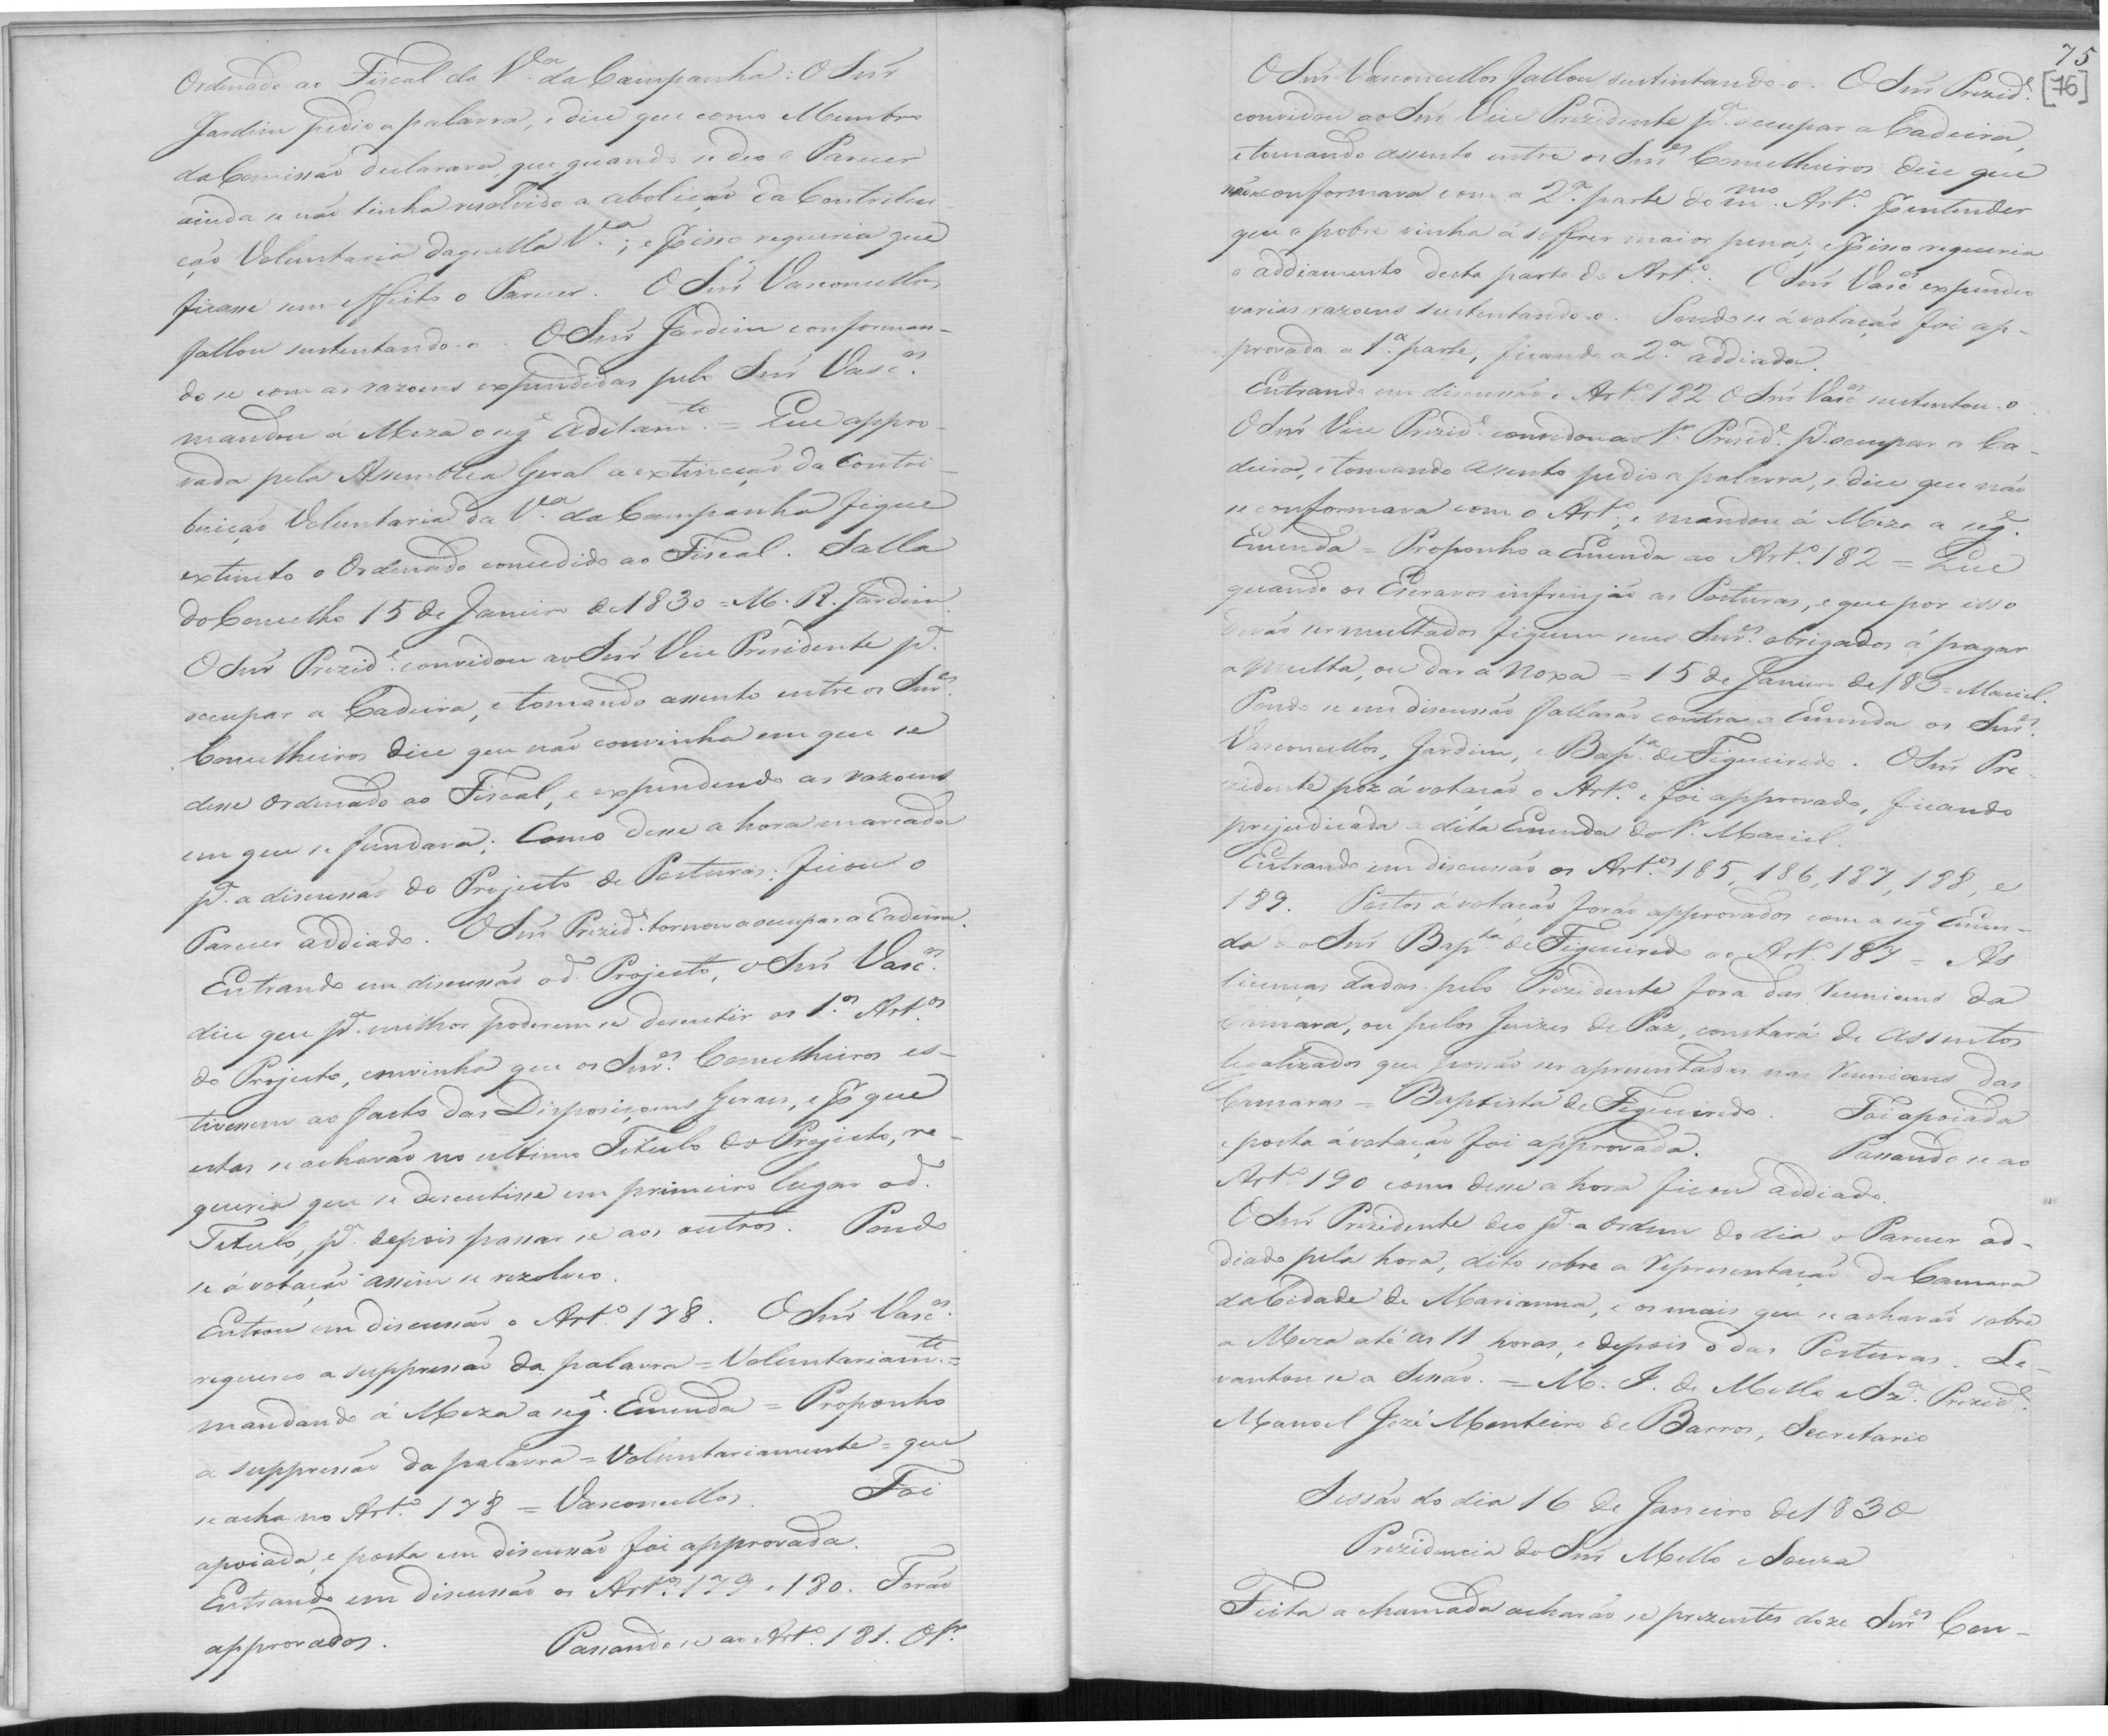 Ordenado ao Fiscal da V.ª da Campanha: O Snr'
Jardim pedio a palavra, e dice que como Membro
da Comissão declarava, que quando se deo o Parecer
ainda se não tinha resolvido a abolição da Contribui-
ção Voluntaria daquella V.ª; e p isso requeria que
ficasse sem effeito o Parecer. O Snr' Vasconcellos
fallou sustentando-o. O Snr' Jardim conforman-
do se com as razoens expendidas pelo Snr' Vasc.os
mandou á Meza o seg.e Aditam.to = Que appro-
vada pela Assemblea Geral a extincção da Contri-
buição Voluntaria da V.ª da Campanha fique
extincto o Ordenado concedido ao Fiscal. Salla
do Concelho 15 de Janeiro de 1830 = M. R. Jardim.
O Snr' Prezid.e convidou ao Snr' Vice Presidente p.ª
occupar a Cadeira, e tomando assento entre os Snr.es
Concelheiros dice que não convinha em que se
desse Ordenado ao Fiscal, e expendendo as razoens
em que se fundava; Como desse a hora marcada
p.ª a discussão do Projecto de Posturas: ficou o
Parecer addiado. O Snr' Prezid.e tornou a occupar a Cadeira.
Entrando em discussão o d.º Projecto, o Snr' Vasc.os
dice que p.ª milhor poderem se descutir os 1.os Art.os
do Projecto, convinha que os Snr.es Concelheiros es-
tivessem ao facto das Disposiçoens Geraes, e p que
estas se acharão no ultimo Titulo do Projecto, re-
queria que se descutisse em primeiro lugar o d.º
Titulo, p.ª depois passar se aos outros. Pondo
se á votação assim se rezolveo.
Entrou em discussão o Art.º 178. O Snr' Vasc.os
requereo a suppressão da palavra = Voluntariam.te =
mandando á Meza a seg.e Emenda = Proponho
a suppressão da palavra = Voluntariamente = que
se acha no Art.º 178 = Vasconcellos. Foi
apoiada, e posta em discussão foi approvada.
Entrando em discussão os Art.os 179 e 180. Forão
approvados. Passando se ao Art.º 181. O Sr.
75
[76]
O Snr' Vasconcellos fallou sustentando-o. O Snr' Prezid.e
convidou ao Snr' Vice Prezidente p.ª occupar a Cadeira,
e tomando assento entre os Snr.es Concelheiros dice que
não se conformava com a 2.ª parte do m.mo Art.º p entender
que o pobre vinha á soffrer maior pena; e p isso requeria
o addiamento desta parte do Art.º. O Snr' Vasc.os expendeo
varias razoens sustentando-o. Pondo se á votação foi ap-
provada a 1.ª parte, ficando a 2.ª addiada.
Entrando em discussão o Art.º 182 O Snr' Vasc.os sustentou-o.
O Snr' Vice Prezid.e convidou ao Sr. Presid.e p.ª occupar a Ca-
deira, e tomando assento pedio a palavra, e dice que não
se conformava com o Art.º, e mandou á Meza a seg.e
Emenda = Proponho a Emenda ao Art.º 182 = Que
quando os Escravos infrinjão as Posturas, e que por isso
devão ser multados fiquem seus Snr.es obrigados á pagar
a multa, ou dar á noxa = 15 de Janeiro de 183 = Maciel.
Pondo se em discussão fallarão contra a Emenda os Snr.es
Vasconcellos, Jardim, e Bap.ta de Figueiredo. O Snr' Pre-
zidente poz á votação o Art.º e foi approvado, ficando
prejudicada a dita Emenda do Sr. Maciel.
Entrando em discussão os Art.os 185, 186, 187, 188, e
189. Postos á votação forão approvados com a seg.e Emen-
da do Snr' Bap.ta de Figueiredo ao Art.º 187 = As
licenças dadas pelo Prezidente fora das reunioens da
Camara, ou pelos Juizes de Paz, constará de assentos
legalizados que possão ser apresentadas nas reunioens das
Camaras = Baptista de Figueiredo. Foi apoiada
e posta á votação foi approvada. Passando se ao
Art.º 190 como desse a hora ficou addiado.
O Snr' Prezidente deo p.ª a Ordem do dia o Parecer ad-
diado pela hora, dito sobre a Representação da Camara
da Cidade de Marianna, e os mais que se acharão sobre
a Meza até as 11 horas, e depois o das Posturas. Le-
vantou se a Sessão. = M. I. de Mello e Sz.ª Prezid.e
Manoel Jozé Monteiro de Barros, Secretario
Sessão do dia 16 de Janeiro de 1830
Prezidencia do Snr' Mello e Souza
Feita a chamada acharão se prezentes doze Snr.es Con-